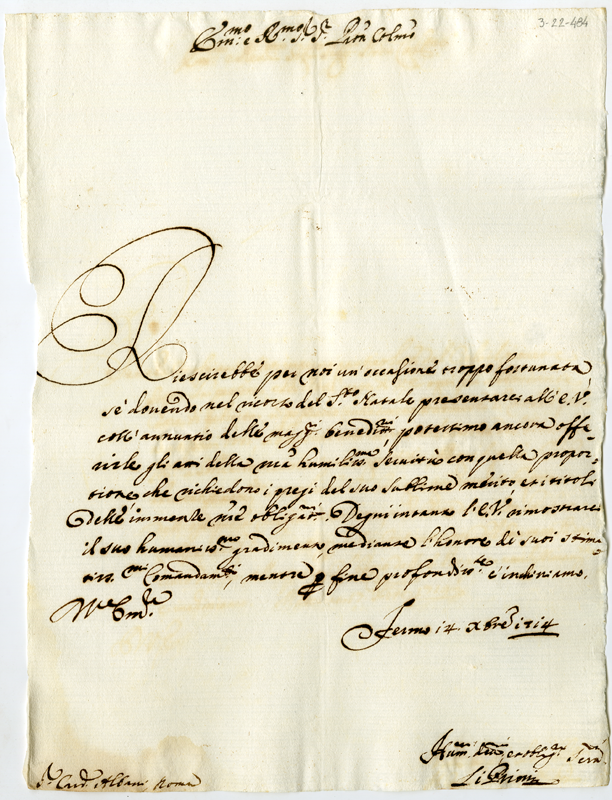 3-22-484
Em.mo e R.mo S.r S.r P.ron Colmo
Riescirebbe per noi un'occasione troppo fortunata
se dovendo nel ricorso del S.to Natale presentarci all'E.V.
coll'annuntio delle magg.ri benedit.ni potessimo ancora offe-
rirle gli atti della n.ra humiliss.ma Servitù con quella propor-
tione che richiedono i pregi del suo sublime merito et i titoli
delle immense n.re obligat.ni. Degni intanto l'E.V. rimostrare
il suo humaniss.mo gradimento, mediante l'honore de suoi stima-
tiss.mi Comandam.ti, mentre per fine profondiss.te c'inchiniamo.
Di V.E.
Fermo 14. Xbre 1714
Hum.mi et oblig.mi Ser.ri
Li Priori
S.r Card. Albani Roma